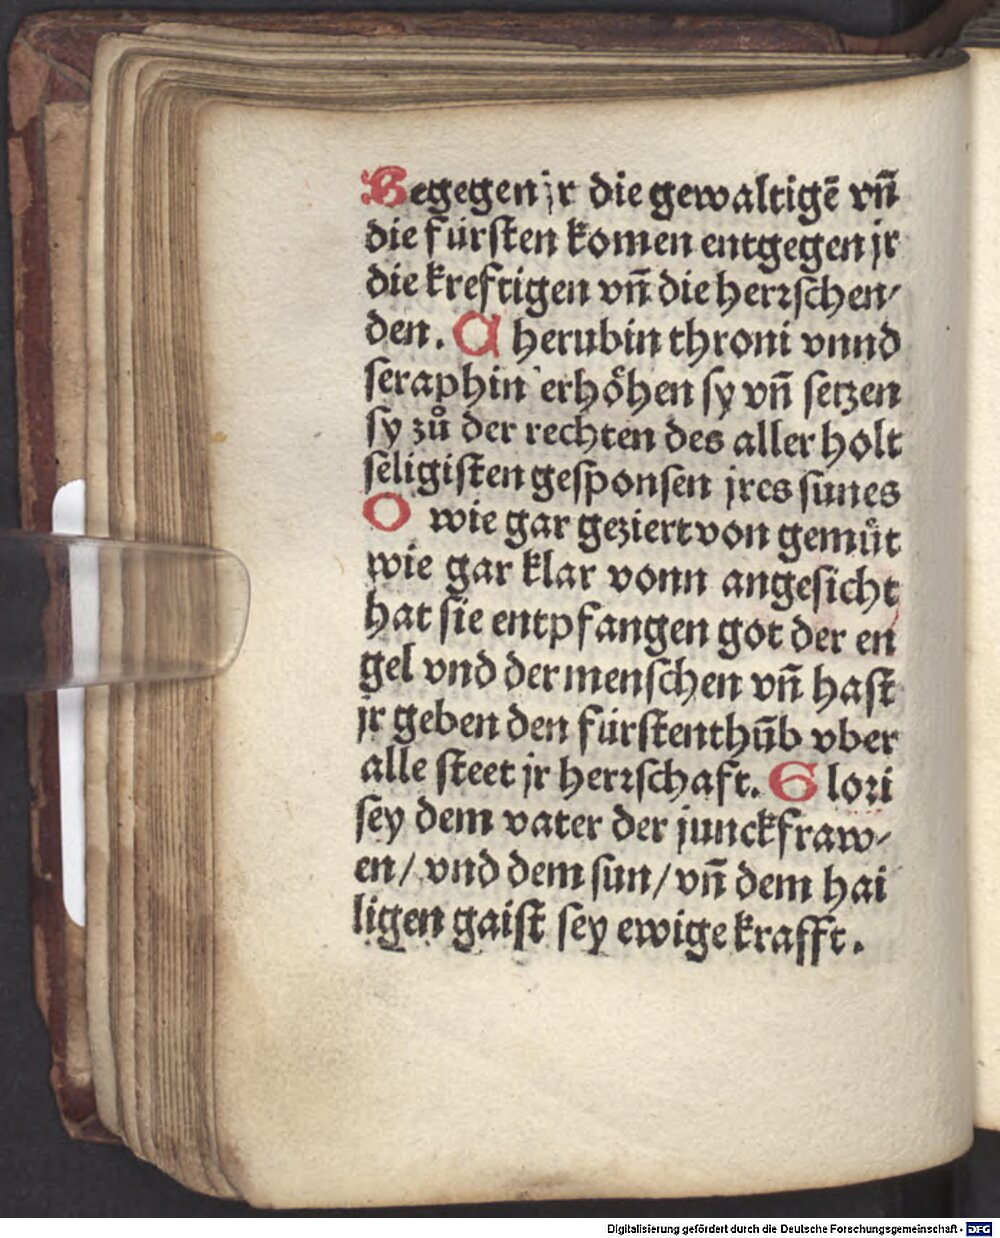 Begegen jr die gewaltigē vn̄
die fürsten komen entgegen jr
die kreftigen vn̄ die herrschen⸗
den. C herubin throni vnnd
seraphin erhöhen sy vn̄ setzen
sy zů der rechten des aller holt
seligisten gesponsen jres sunes
O wie gar geziert von gemüt
wie gar klar vonn angesicht
hat sie entpfangen got der en
gel vnd der menschen vn̄ hast
jr geben den fürstenthūb vber
alle steet jr herrschaft. G lori
sey dem vater der junckfraw⸗
en/ vnd dem sun/ vn̄ dem hai
ligen gaist sey ewige krafft.
Digitalisierung gefördert durch die Deutsche Forschungsgemeinschaft - DFG